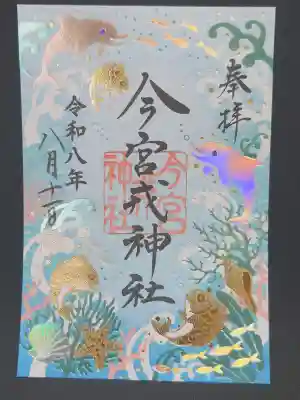 奉拝
今宮戎神社
今宮
神社
令和八年
八月十一日